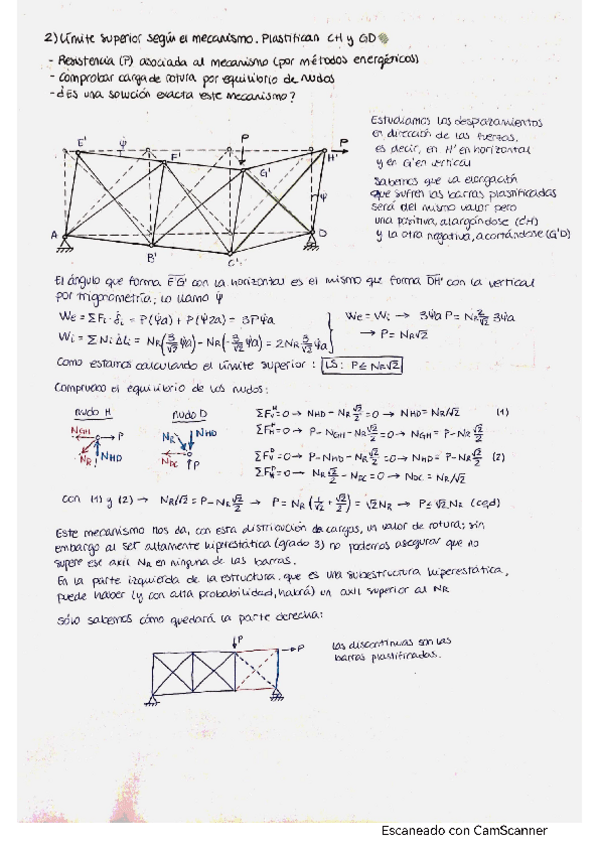 2) Límite superior según el mecanismo. Plastifican CH y GD
- Resistencia (P) asociada al mecanismo (por métodos energéticos)
- Comprobar carga de rotura por equilibrio de nudos
- ¿Es una solución exacta este mecanismo?
Estudiamos los desplazamientos
en dirección de las fuerzas,
es decir, en H' en horizontal
y en G' en vertical
Sabemos que la elongación
que sufren las barras plastificadas
será del mismo valor pero
una positiva, alargándose (C'H')
y la otra negativa, acortándose (G'D)
E' φ̇ F' P G' P H' φ̇
A B' C' D
El ángulo que forma E'G' con la horizontal es el mismo que forma DH' con la vertical
por trigonometría; lo llamo φ̇
We = ΣFi·δ̇i = P(φ̇a) + P(φ̇2a) = 3Pφ̇a
Wi = ΣNi Δ̇Li = NR(3/√2 φ̇a) - NR(-3/√2 φ̇a) = 2NR 3/√2 φ̇a
We = Wi → 3φ̇a P = NR 2/√2 3φ̇a
→ P = NR√2
Como estamos calculando el límite superior: LS: P ≤ NR√2
Compruebo el equilibrio de los nudos:
nudo H nudo D
NGH P NR NHD
NR NHD NDC P
ΣFV^H = 0 → NHD - NR √2/2 = 0 → NHD = NR/√2 (1)
ΣFH^H = 0 → P - NGH - NR √2/2 = 0 → NGH = P - NR √2/2
ΣFV^D = 0 → P - NHD - NR √2/2 = 0 → NHD = P - NR √2/2 (2)
ΣFH^D = 0 → NR √2/2 - NDC = 0 → NDC = NR/√2
con (1) y (2) → NR/√2 = P - NR √2/2 → P = NR(1/√2 + √2/2) = √2 NR → P ≤ √2 NR (cqd)
Este mecanismo nos da, con esta distribución de cargas, un valor de rotura; sin
embargo al ser altamente hiperestática (grado 3) no podemos asegurar que no
supere ese axil NR en ninguna de las barras.
En la parte izquierda de la estructura, que es una subestructura hiperestática,
puede haber (y con alta probabilidad, habrá) un axil superior al NR
Sólo sabemos cómo quedará la parte derecha:
P P
las discontinuas son las
barras plastificadas.
Escaneado con CamScanner